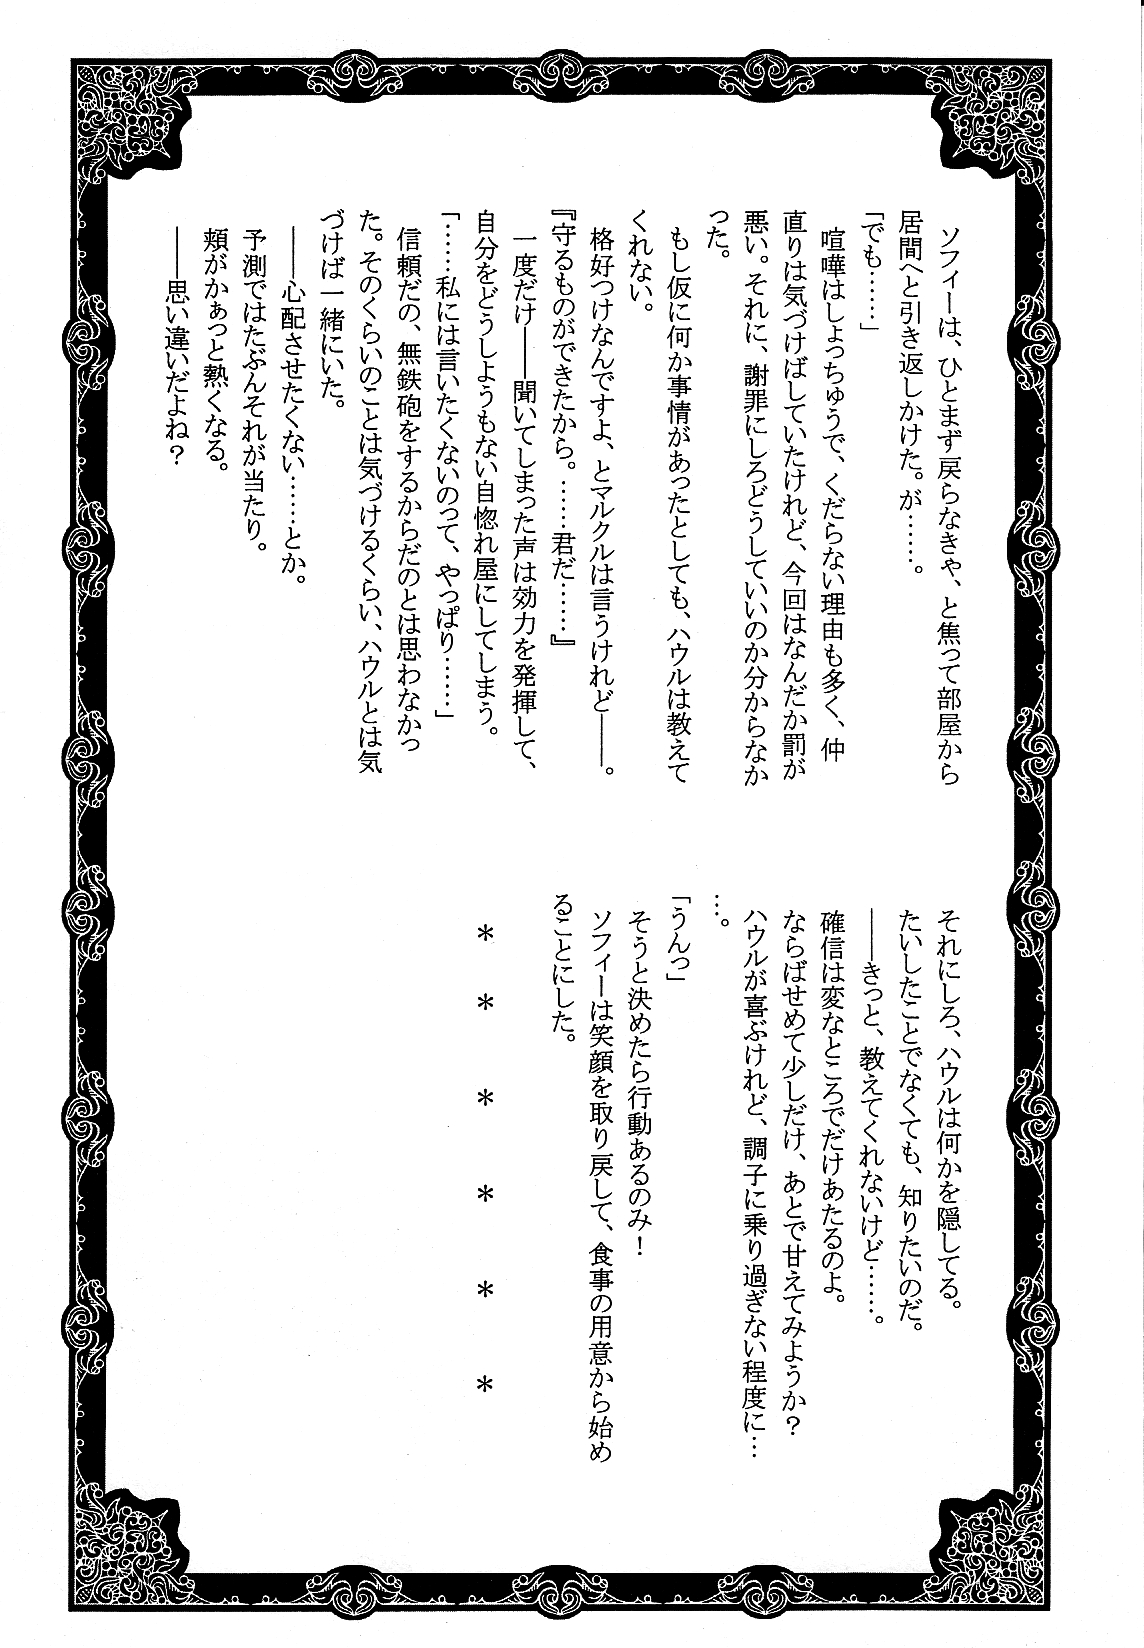 ソフィーは、ひとまず戻らなきゃ、と焦って部屋から
居間へと引き返しかけた。が……。
「でも……」
喧嘩はしょっちゅうで、くだらない理由も多く、仲
直りは気づけばしていたけれど、今回はなんだか罰が
悪い。それに、謝罪にしろどうしていいのか分からなか
った。
もし仮に何か事情があったとしても、ハウルは教えて
くれない。
格好つけなんですよ、とマルクルは言うけれど――。
『守るものができたから。……君だ……』
一度だけ――聞いてしまった声は効力を発揮して、
自分をどうしようもない自惚れ屋にしてしまう。
「……私には言いたくないのって、やっぱり……」
信頼だの、無鉄砲をするからだのとは思わなかっ
た。そのくらいのことは気づけるくらい、ハウルとは気
づけば一緒にいた。
――心配させたくない……とか。
予測ではたぶんそれが当たり。
頬がかぁっと熱くなる。
――思い違いだよね？
それにしろ、ハウルは何かを隠してる。
たいしたことでなくても、知りたいのだ。
――きっと、教えてくれないけど……。
確信は変なところでだけあたるのよ。
ならばせめて少しだけ、あとで甘えてみようか？
ハウルが喜ぶけれど、調子に乗り過ぎない程度に…
…。
「うんっ」
そうと決めたら行動あるのみ！
ソフィーは笑顔を取り戻して、食事の用意から始め
ることにした。
＊　＊　＊　＊　＊　＊